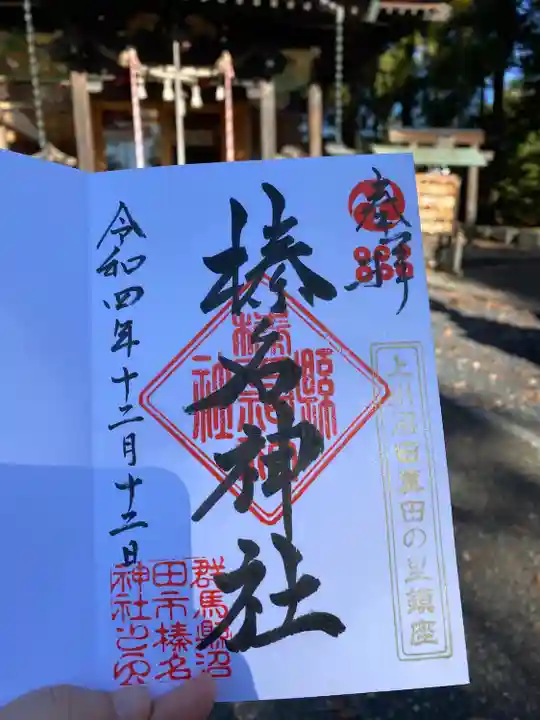 奉拝
上州沼田真田の里鎮座
榛名神社
群馬縣沼
田市榛名
神社之印
令和四年十二月十三日